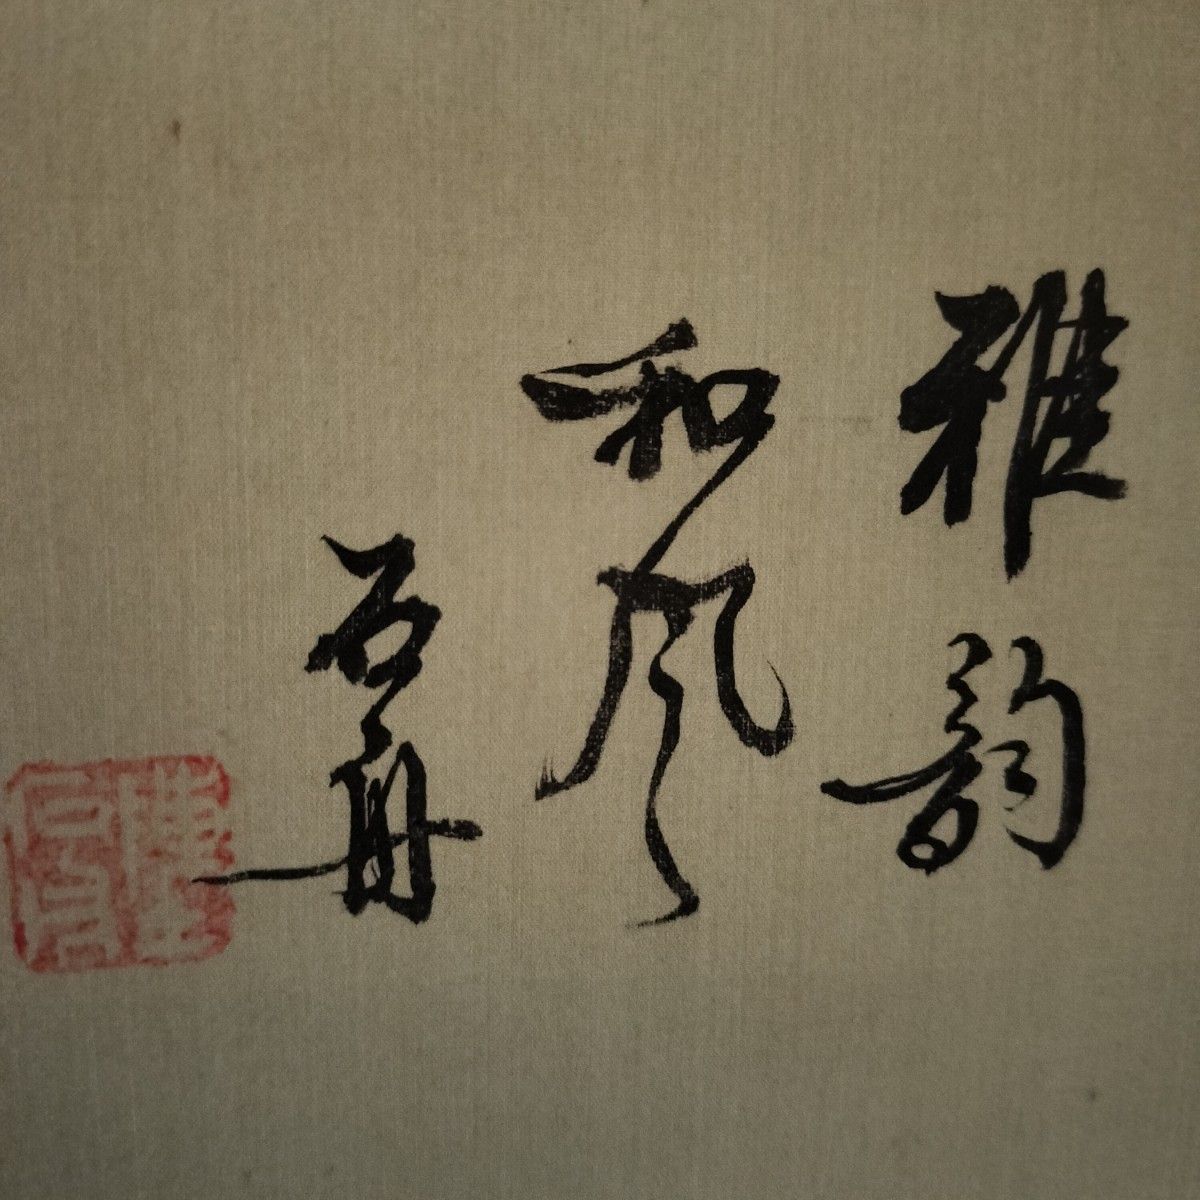 雅韵
和风
石舟